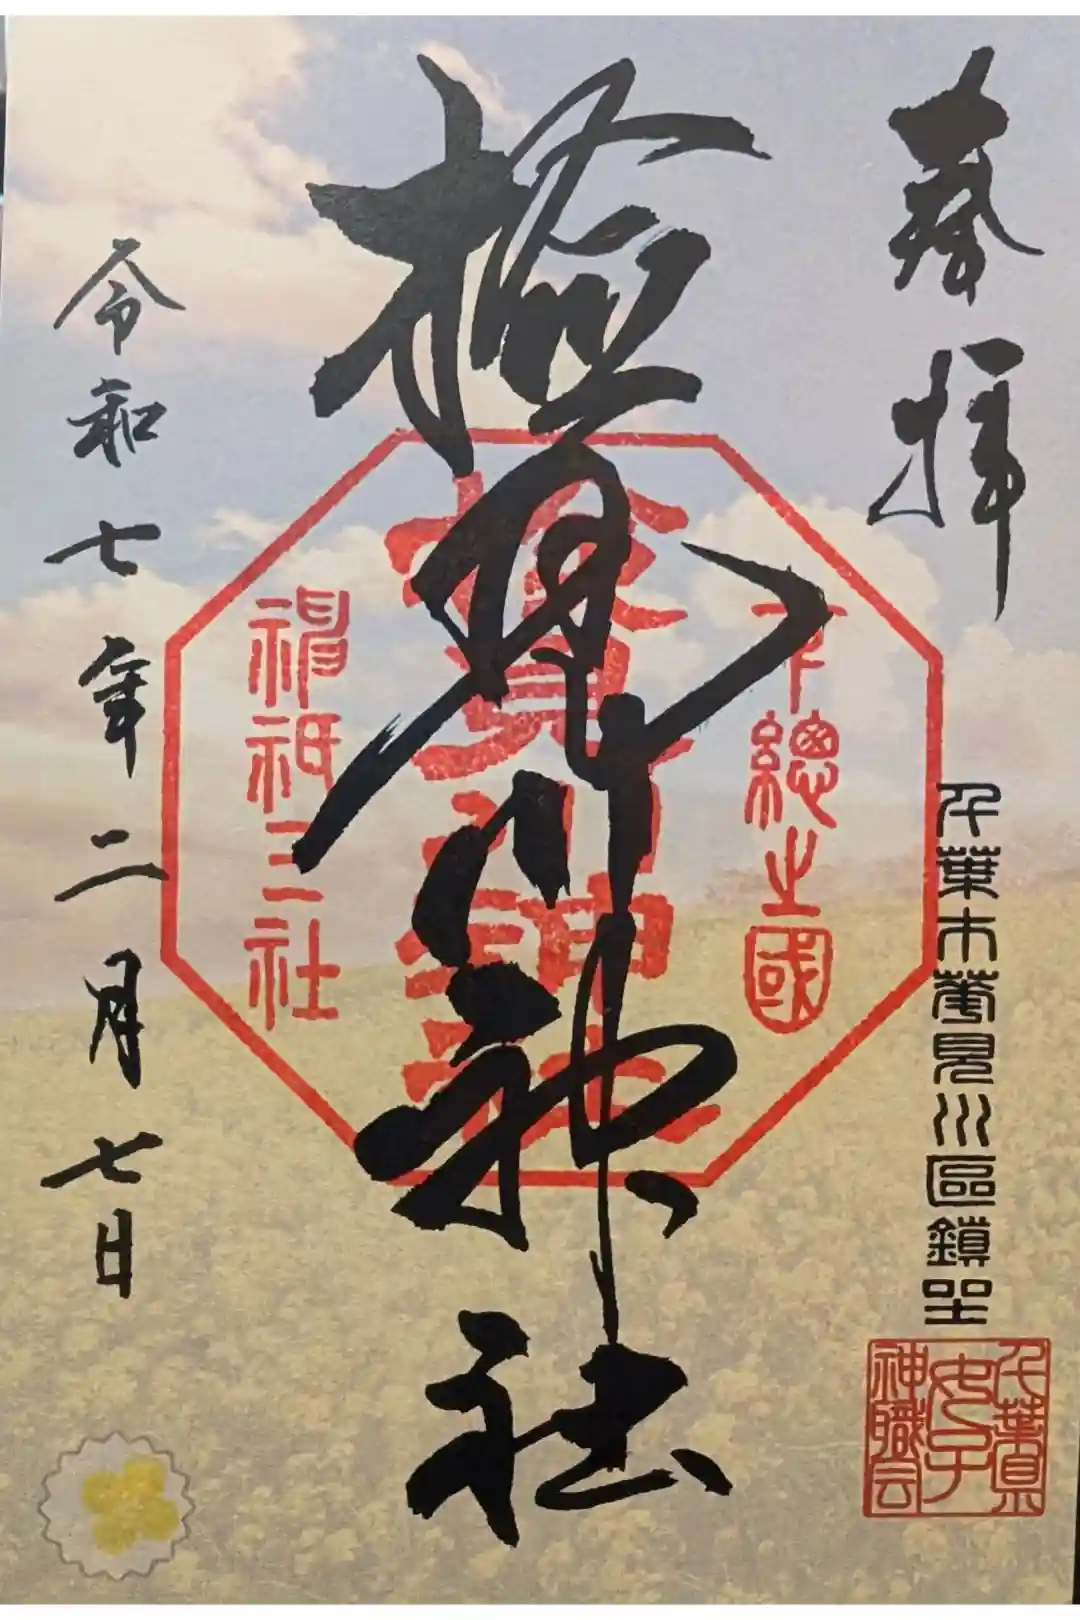 奉拝
千葉市花見川區鎮坐
千葉県
女子
神職会
下總之國
検見川神社
検見川神社
神祇三社
令和七年二月七日